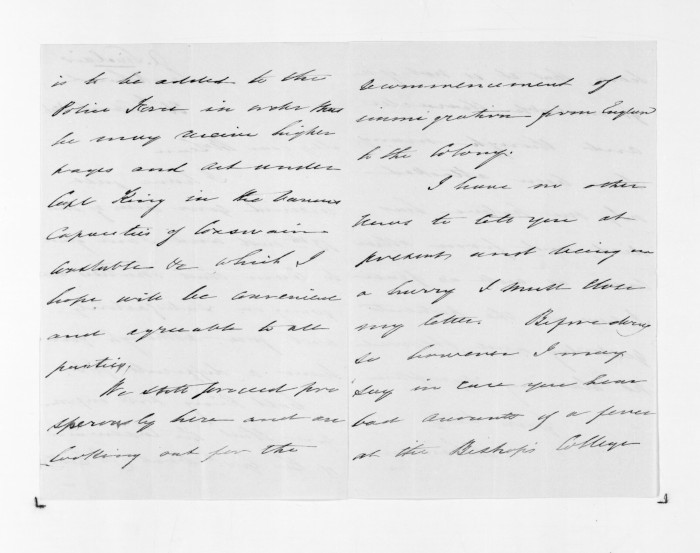 is to be added to the
Police Force in order that
he may receive higher
wages and act under
Capt King in the various
Capacities of Coxswain
Constable &c which I
hope will be convenient
and agreeable to all
parties.
We still proceed pro
sperously here and are
looking out for the
recommencement of
immigration from England
to the Colony.
I have no other
news to tell you at
present and being in
a hurry I must close
my letter. Before doing
so however I may
say in case you hear
bad accounts of a fever
at the Bishop's College